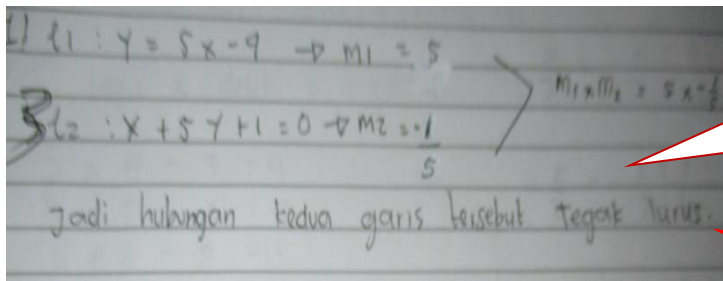 1) l1 : y = 5x - 9 → m1 = 5
m1 x m2 = 5 x -1/5
l2 : x + 5y + 1 = 0 → m2 = -1/5
Jadi hubungan kedua garis tersebut tegak lurus.